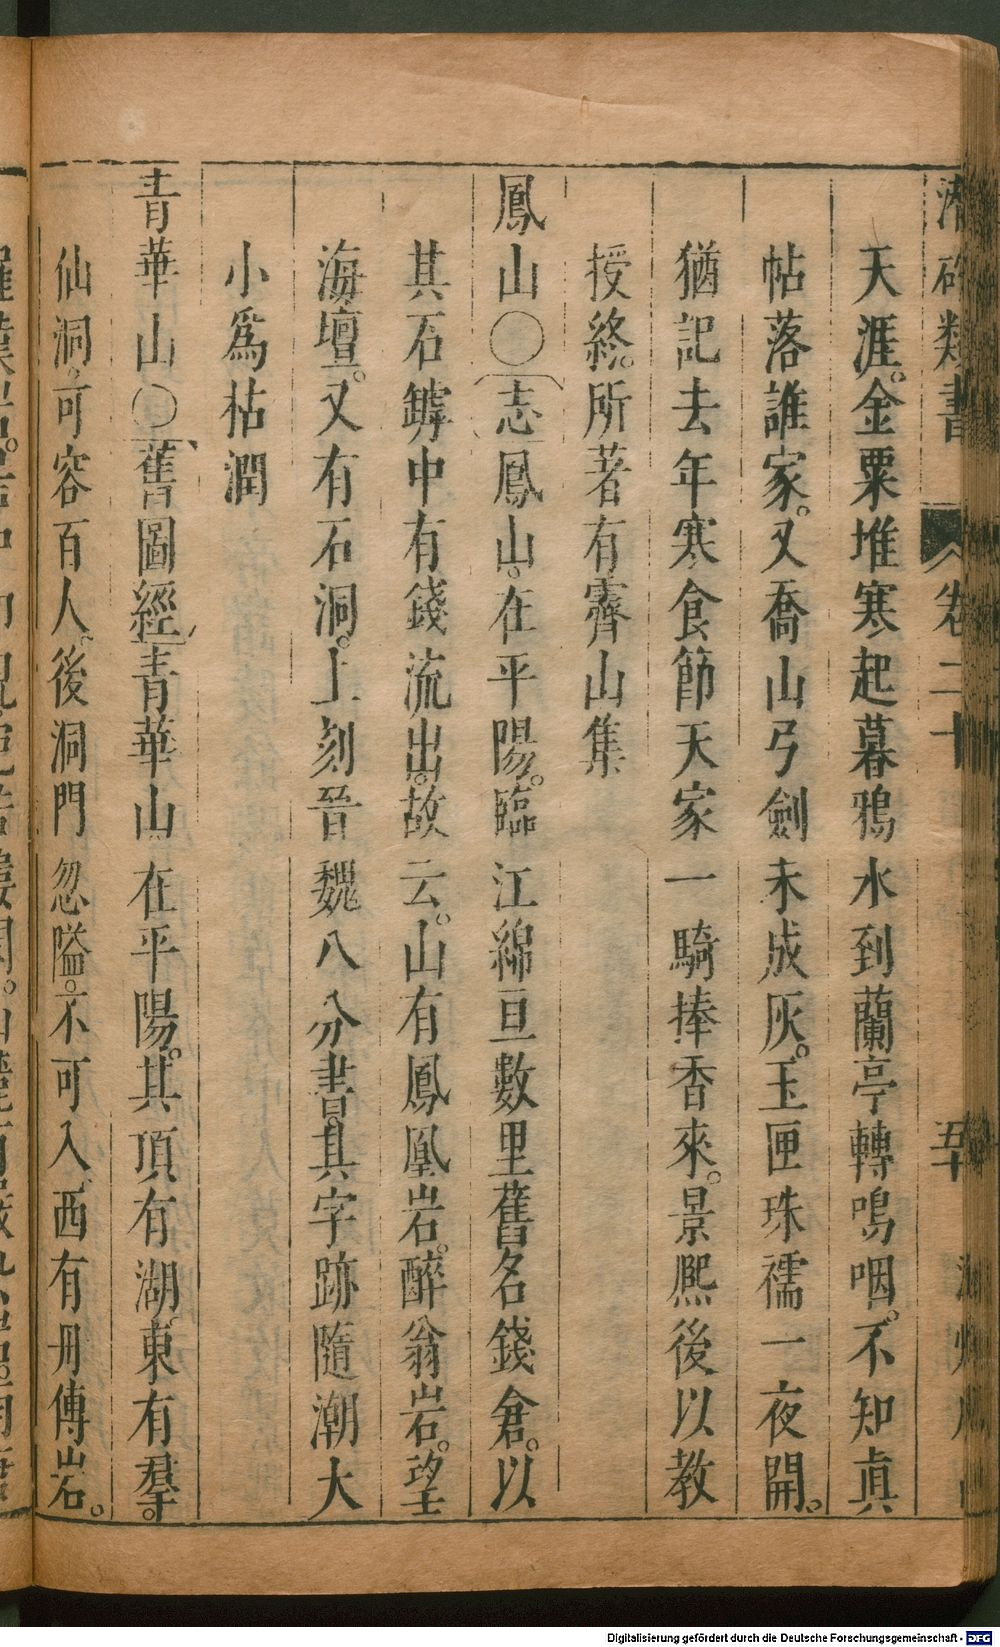 潛確類書 卷二十 五十
天涯。金粟堆寒起暮鴉水到蘭亭轉鳴咽。不知真
帖落誰家。又喬山弓劍未成灰。玉匣珠襦一夜開。
猶記去年寒食節天家一騎捧香來。景熈後以教
授終。所著有霽山集
鳳山〇志鳳山。在平陽。臨江綿亘數里舊名錢倉。以
其石罅中有錢流出。故云。山有鳳凰岩。醉翁岩。望
海壇。又有石洞。上刻晉魏八分書。其字跡隨潮大
小爲枯潤
青華山〇舊圖經青華山在平陽。其頂有湖。東有羣。
仙洞。可容百人。後洞門忽隘。不可入。西有丹傳岩。
Digitalisierung gefördert durch die Deutsche Forschungsgemeinschaft - DFG